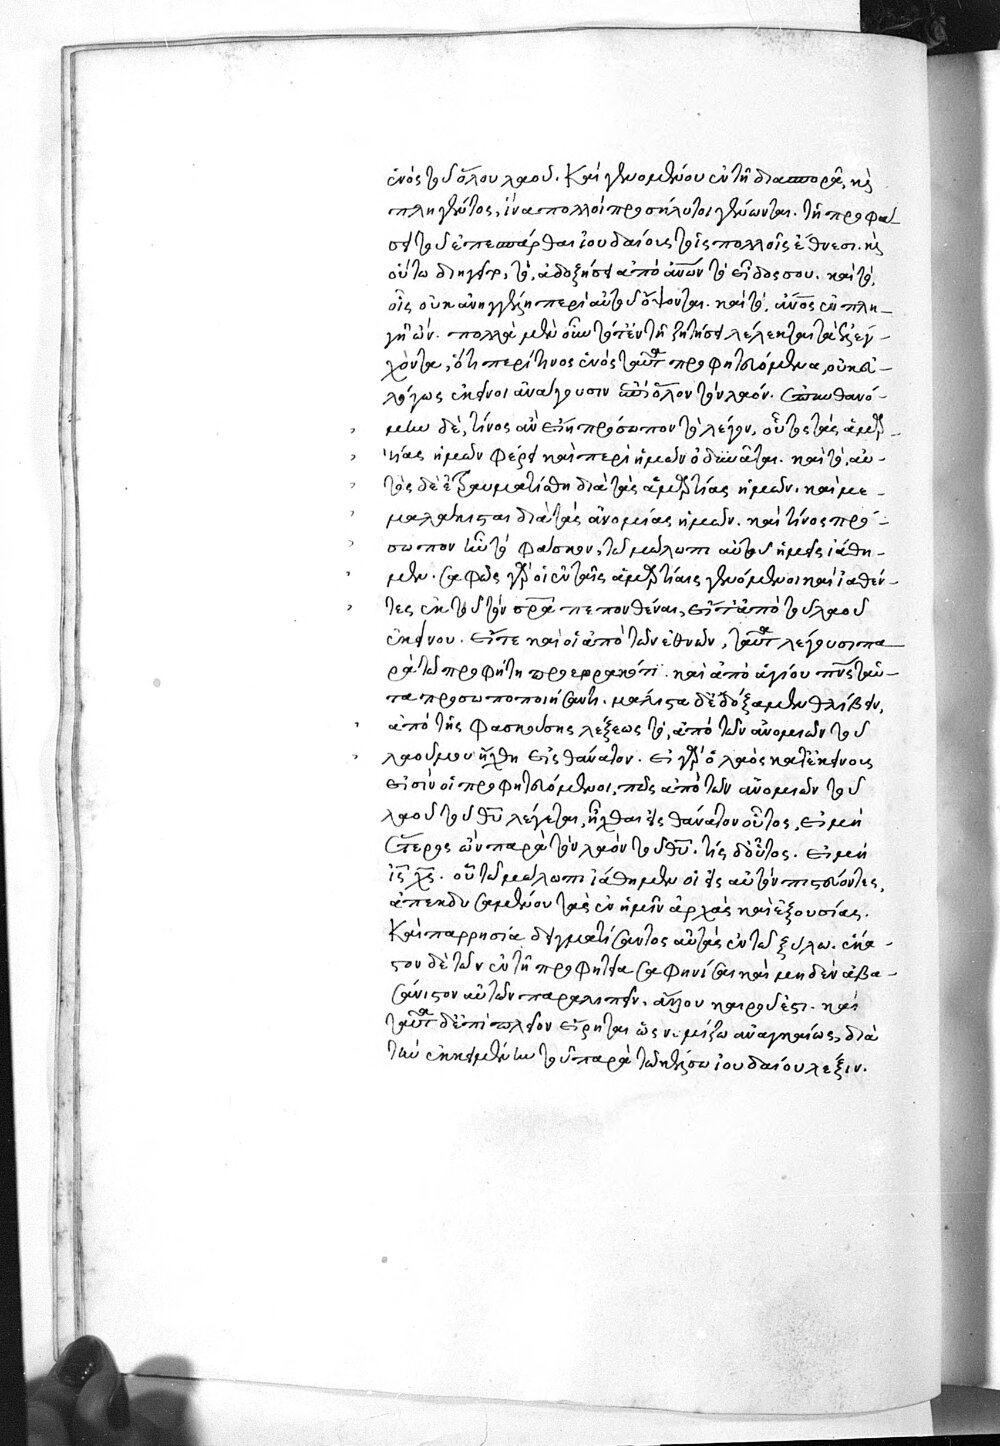 ἑνὸς τοῦ ὅλου λαοῦ. Καὶ γενομένου ἐν τῇ διασπορᾷ, καὶ
πληγέντος, ἵνα πολλοὶ προσήλυτοι γένωνται. τῇ προφά
σει τοῦ ἐπεσπάρθαι ἰουδαίους τοῖς πολλοῖς ἔθνεσι. καὶ
οὕτω διηγεῖτο, τό, ἀδοξήσει ἀπὸ ἀνων τὸ εἶδος σου. καὶ τό,
οἷς οὐκ ἀνηγγέλη περὶ αὐτοῦ ὄψονται. καὶ τό, ἄνος ἐν πλη-
γῇ ὤν. πολλὰ μὲν οὖν τότ' ἐν τῇ ζητήσει λέλεκται τὰ ἐλέγ-
χοντα, ὅτι περί τινος ἑνὸς ταῦτα προφητευόμενα, οὐκ εὐ-
λόγως ἐκεῖνοι ἀνάγουσιν ἐπὶ ὅλον τὸν λαόν. ἐπυνθανό-
μην δὲ, τίνος ἂν εἴη πρόσωπον τὸ λέγον, οὗτος τὰς ἁμαρ-
τίας ἡμῶν φέρει καὶ περὶ ἡμῶν ὀδυνᾶται. καὶ τό, αὐ-
τὸς δὲ ἐτραυματίσθη διὰ τὰς ἁμαρτίας ἡμῶν. καὶ με-
μαλάκισται διὰ τὰς ἀνομίας ἡμῶν. καὶ τίνος πρό-
σωπον ἦν τὸ φάσκον, τῷ μώλωπι αὐτοῦ ἡμεῖς ἰάθη-
μεν. Σαφῶς γὰρ οἱ ἐν ταῖς ἁμαρτίαις γενόμενοι καὶ ἰαθέν-
τες ἐκ τοῦ τὸν σρα πεπονθέναι, εἴτ' ἀπὸ τοῦ λαοῦ
ἐκείνου. εἴτε καὶ οἱ ἀπὸ τῶν ἐθνῶν, ταῦτα λέγουσι πα-
ρὰ τῷ προφήτῃ προεωρακότι. καὶ ἀπὸ ἁγίου πνς ταῦ-
τα προσωποποιήσαντι. μάλιστα δὲ ἐδόξαμεν θλίβειν,
ἀπὸ τῆς φασκούσης λέξεως τό, ἀπὸ τῶν ἀνομιῶν τοῦ
λαοῦ μου ἤχθη εἰς θάνατον. εἰ γὰρ ὁ λαὸς κατ' ἐκείνους
εἰσὶν οἱ προφητευόμενοι, πῶς ἀπὸ τῶν ἀνομιῶν τοῦ
λαοῦ τοῦ θυ λέγεται, ἦχθαι εἰς θάνατον οὗτος, εἰ μὴ
ἕτερος ὢν παρὰ τὸν λαὸν τοῦ θυ. τίς δ' οὗτος. εἰ μὴ
ις χς. οὗ τῷ μώλωπι ἰάθημεν οἱ εἰς αὐτὸν πιστεύοντες,
ἀπεκδυσαμένου τὰς ἐν ἡμῖν ἀρχὰς καὶ ἐξουσίας.
Καὶ παρρησίᾳ δειγματίσαντος αὐτὰς ἐν τῷ ξύλῳ. ἕκα-
στον δὲ τῶν ἐν τῇ προφητείᾳ σαφηνίσαι καὶ μηδὲν ἀβα-
σάνιστον αὐτῶν παραλιπεῖν, ἄλλου καιροῦ ἐστι. καὶ
ταῦτα δ' ἐπὶ πλεῖον εἴρηται ὡς νομίζω ἀναγκαίως, διὰ
τὴν ἐκκειμένην τοῦ παρὰ τῷ κέλσῳ ἰουδαίου λέξιν.